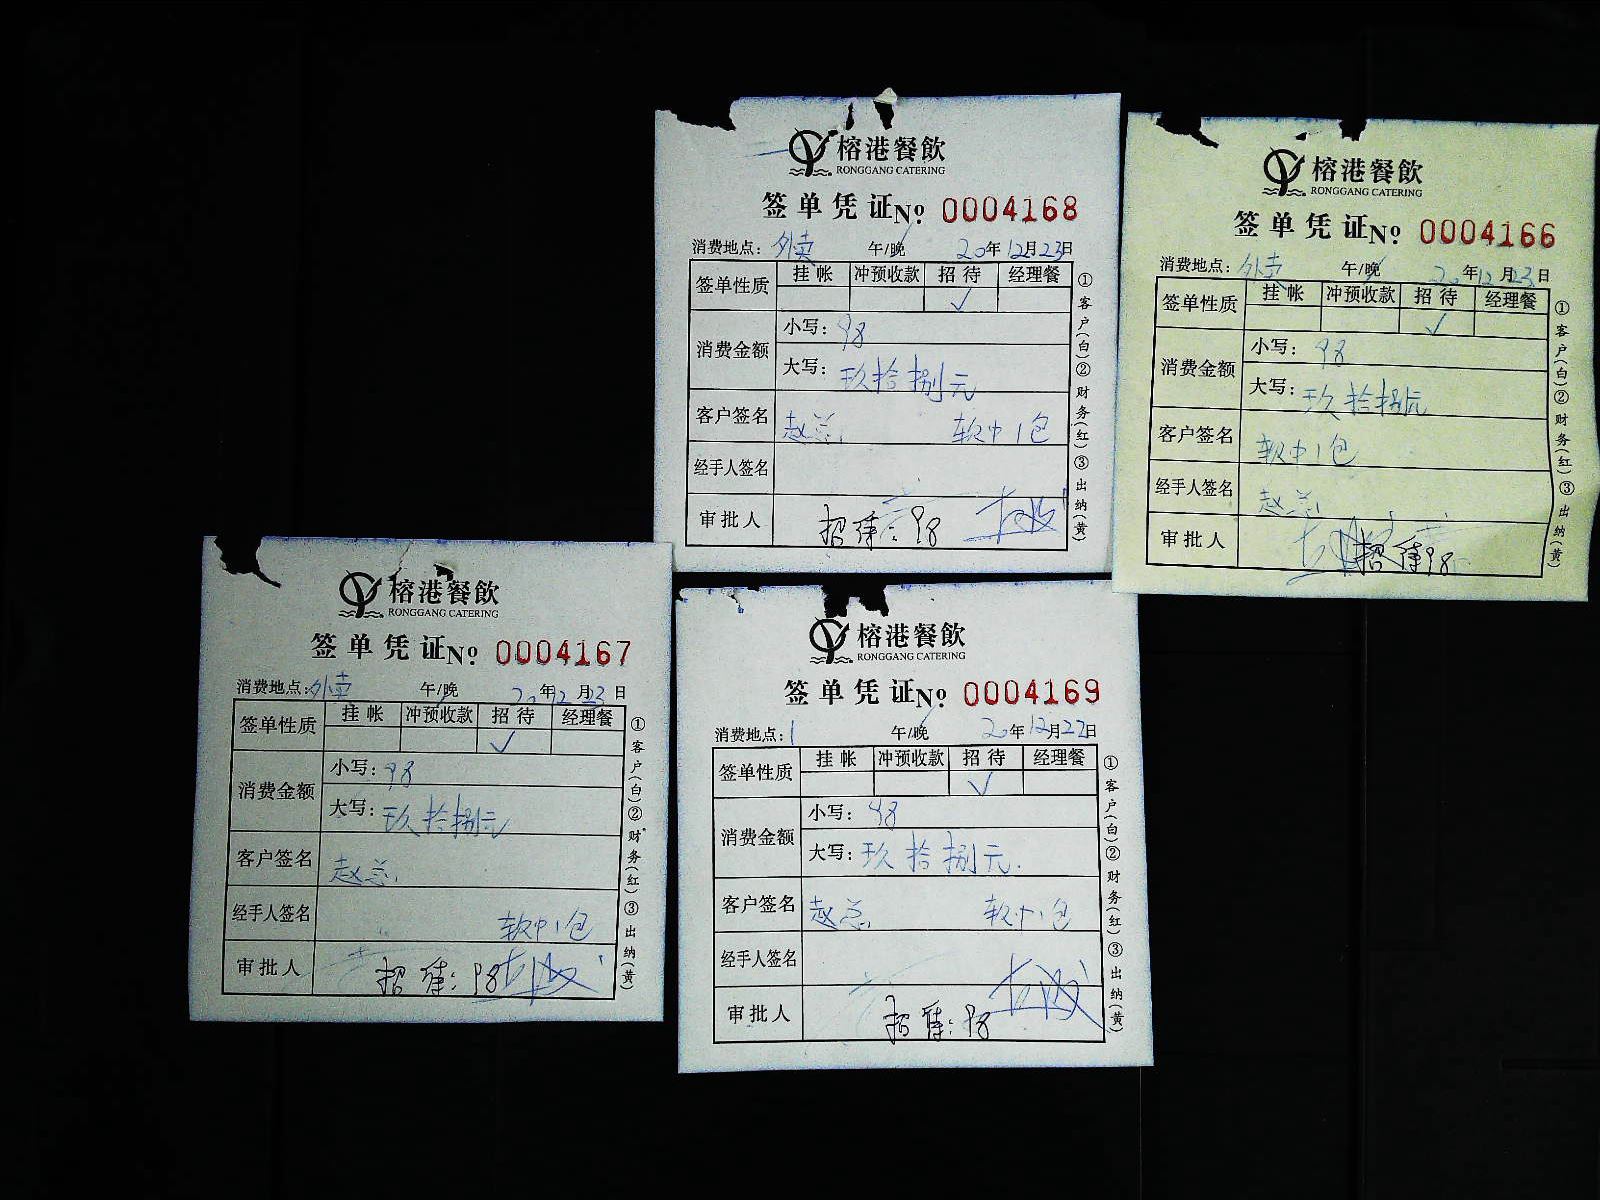 榕港餐飲
RONGGANG CATERING
签单凭证 №: 0004168
消费地点: 外卖 午/晚 20年12月23日
签单性质 挂帐 冲预收款 招待 经理餐
✓
消费金额 小写: 98
大写: 玖拾捌元
客户签名 赵总 软中1包
经手人签名
审批人 招待: 98
①客户(白)②财务(红)③出纳(黄)
榕港餐飲
RONGGANG CATERING
签单凭证 №: 0004166
消费地点: 外卖 午/晚 20年12月23日
签单性质 挂帐 冲预收款 招待 经理餐
✓
消费金额 小写: 98
大写: 玖拾捌元
客户签名 软中1包
经手人签名 赵总
审批人 招待98
①客户(白)②财务(红)③出纳(黄)
榕港餐飲
RONGGANG CATERING
签单凭证 №: 0004167
消费地点: 外卖 午/晚 20年12月23日
签单性质 挂帐 冲预收款 招待 经理餐
✓
消费金额 小写: 98
大写: 玖拾捌元
客户签名 赵总
经手人签名 软中1包
审批人 招待: 98
①客户(白)②财务(红)③出纳(黄)
榕港餐飲
RONGGANG CATERING
签单凭证 №: 0004169
消费地点: 1 午/晚 20年12月22日
签单性质 挂帐 冲预收款 招待 经理餐
✓
消费金额 小写: 98
大写: 玖拾捌元.
客户签名 赵总 软中1包
经手人签名
审批人 招待: 98
①客户(白)②财务(红)③出纳(黄)